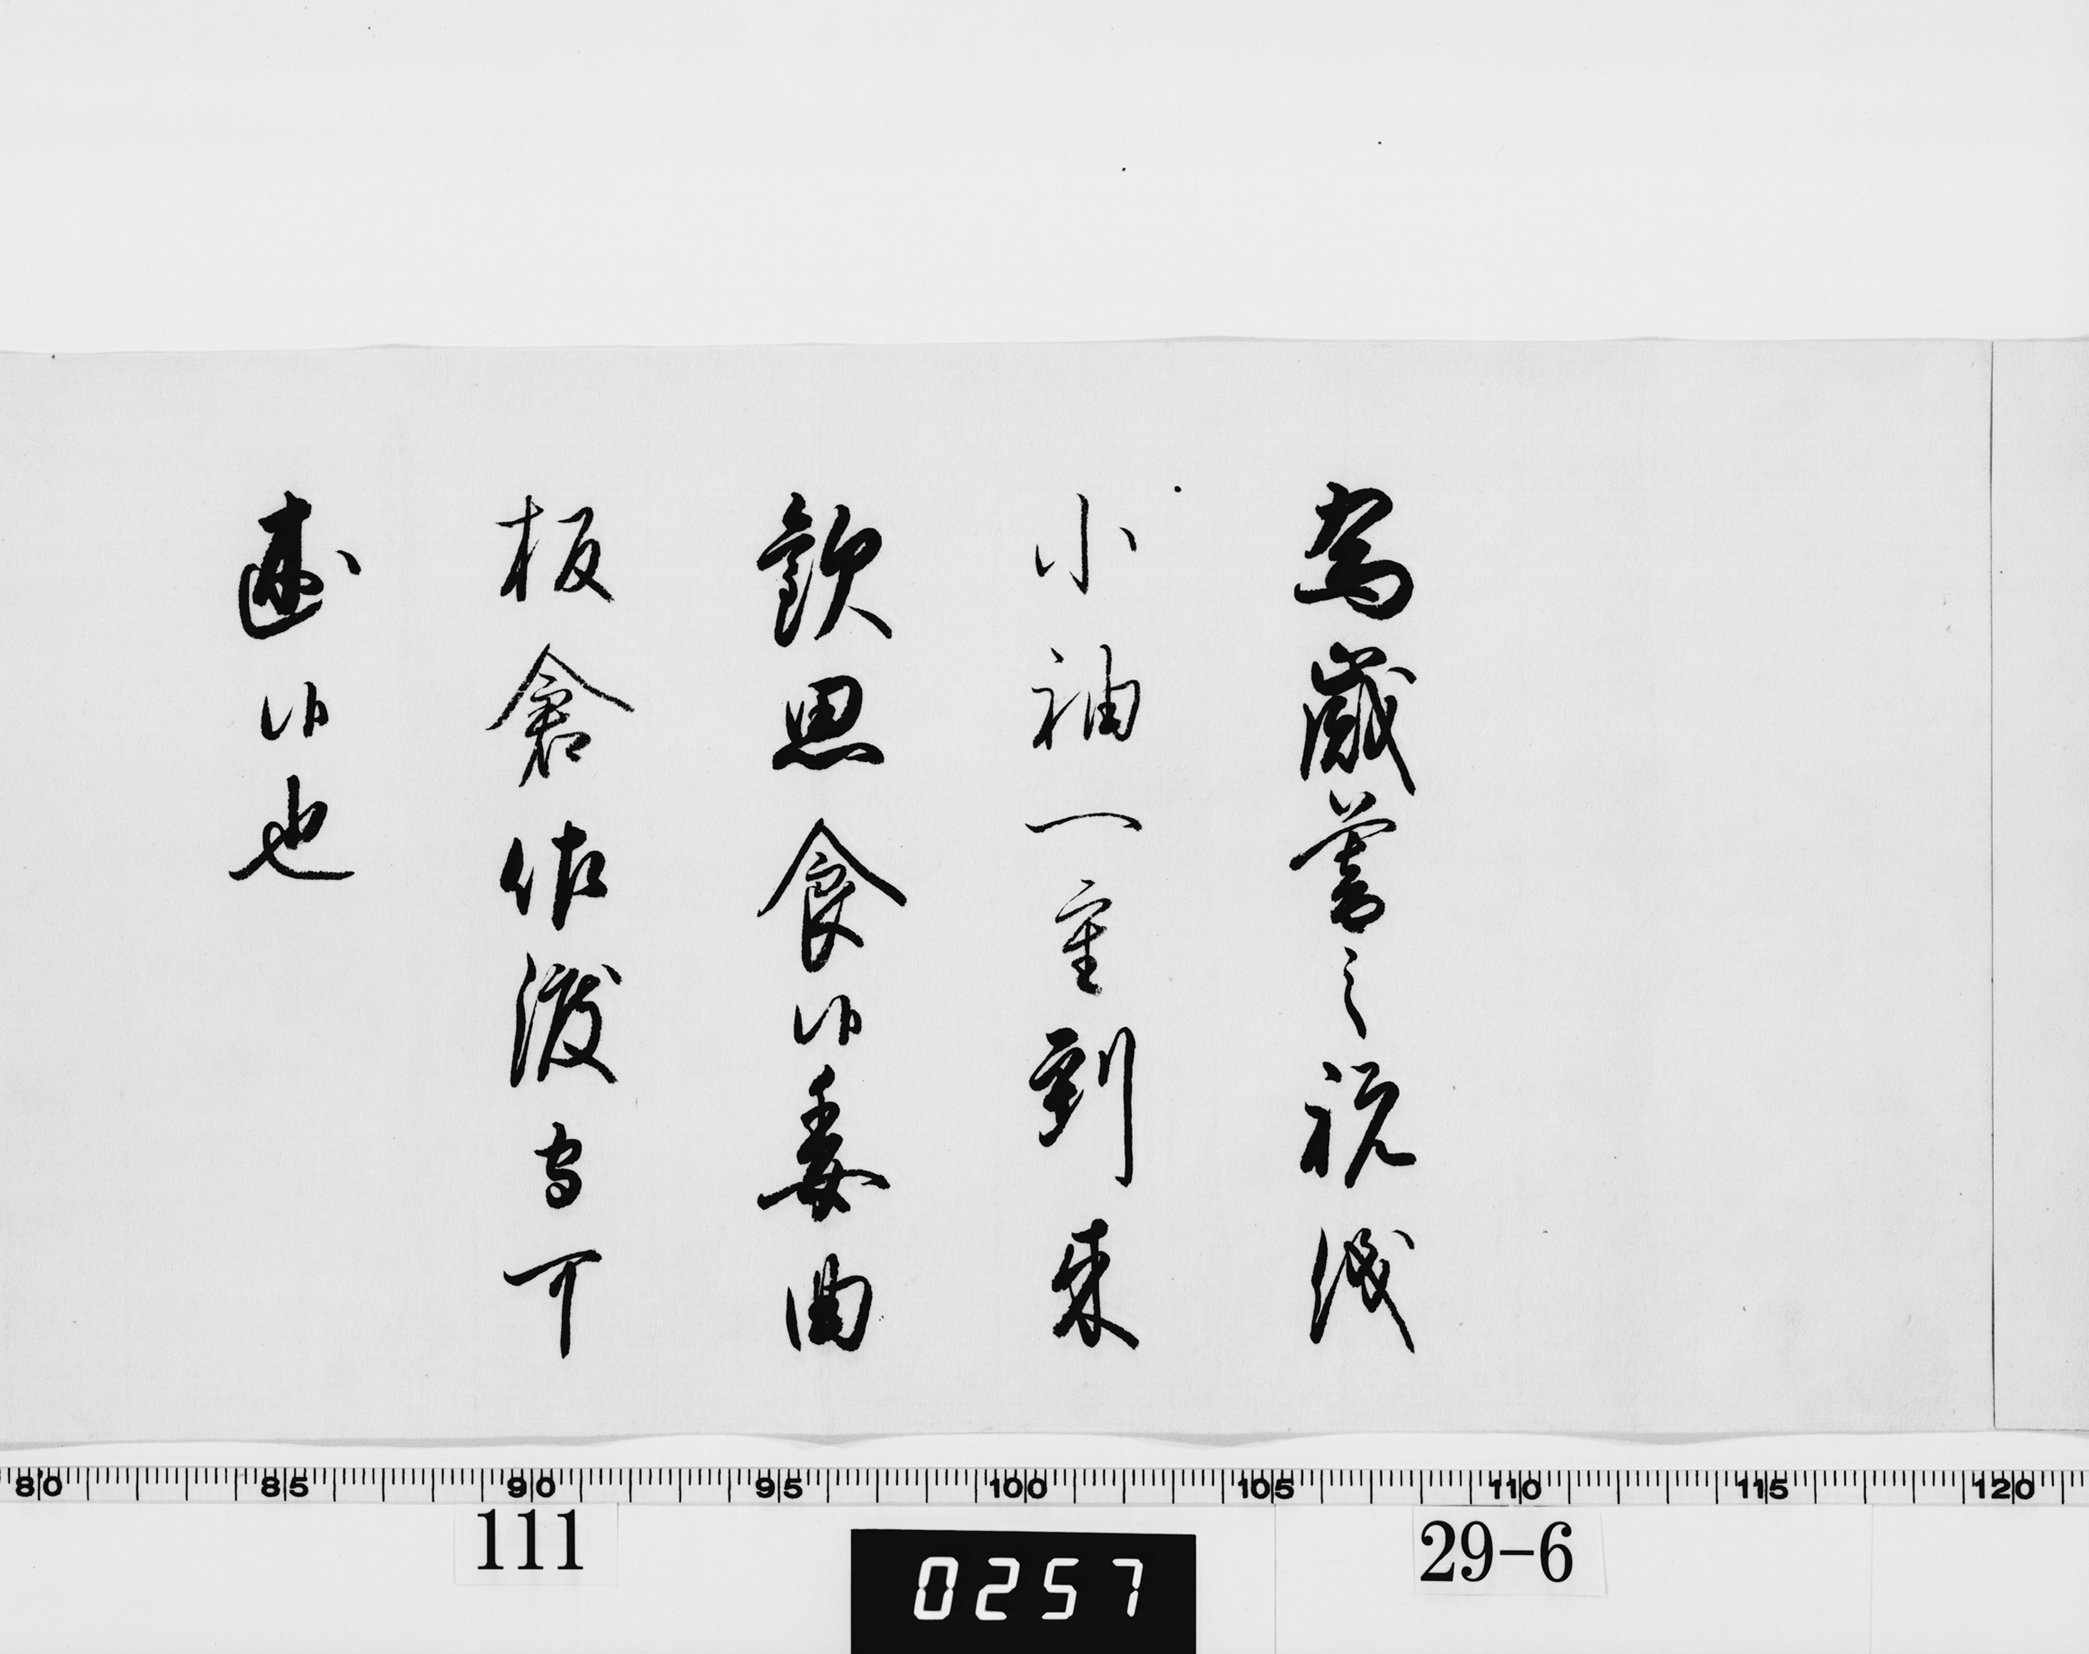 為歳暮之祝儀
小袖一重到来
歓思食候委曲
板倉佐渡守可
述候也
80 85 90 95 100 105 110 115 120
111
0257
29-6